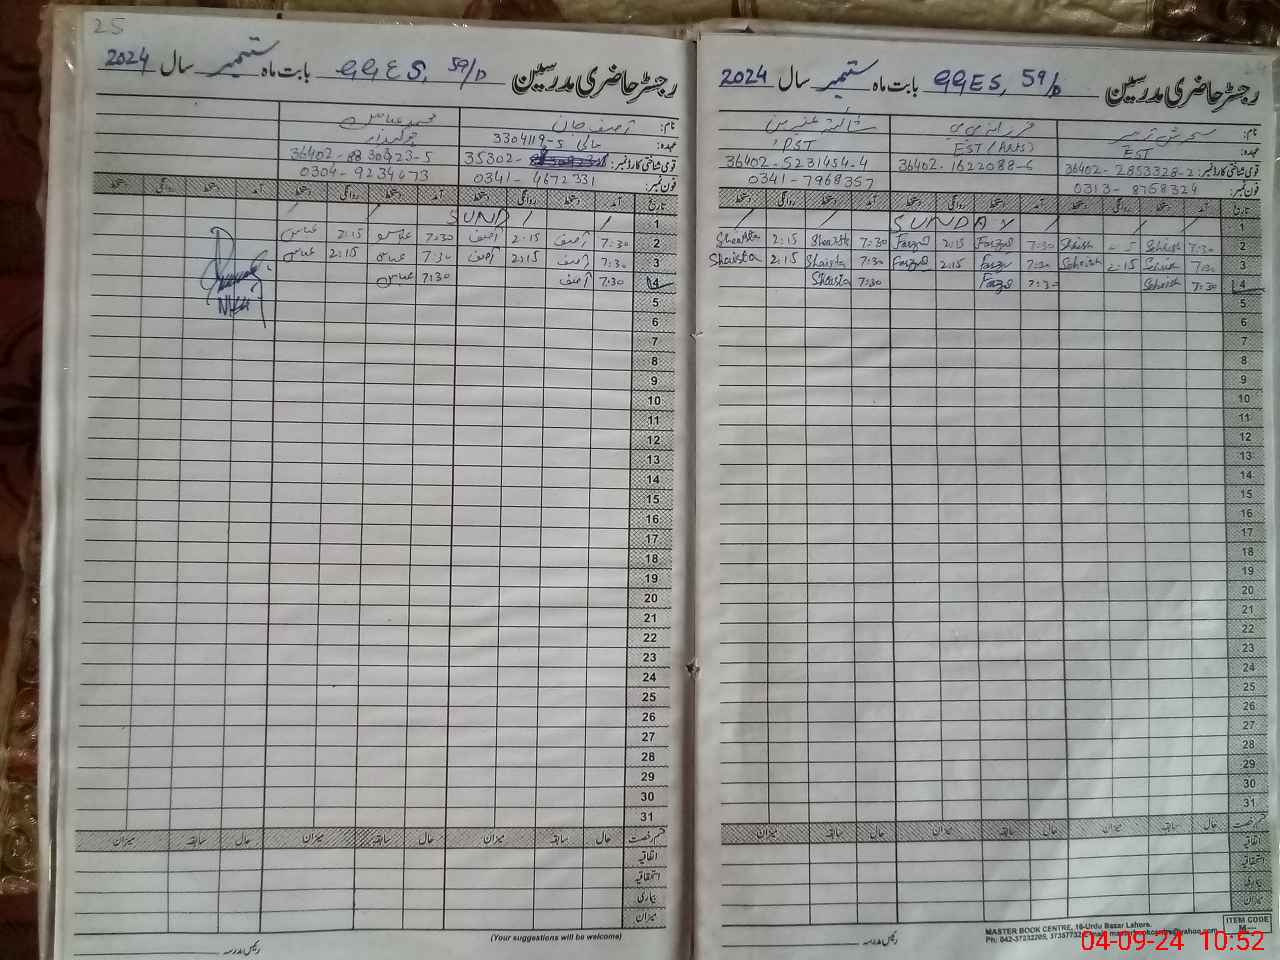 رجسٹر حاضری مدرسین GGES, 59/D بابت ماہ ستمبر سال 2024
نام:
عہدہ: EST EST (Arts) PST
قومی شناختی کارڈ نمبر: 36402-2853328-2 36402-1622088-6 36402-5231454-4
فون نمبر: 0313-8758324 0341-7968357
تاریخ آمد دستخط روانگی دستخط آمد دستخط روانگی دستخط آمد دستخط روانگی دستخط
1 SUNDAY
2 7:30 7:30 2:15 7:30 Shaista 2:15 Shaista
3 7:30 7:30 2:15 7:30 Shaista 2:15 Shaista
4 7:30 7:30 7:30 Shaista
5
6
7
8
9
10
11
12
13
14
15
16
17
18
19
20
21
22
23
24
25
26
27
28
29
30
31
قسم رخصت حال سابقہ میزان حال سابقہ میزان حال سابقہ میزان
اتفاقیہ
استحقاقیہ
بیماری
میزان
رئیس مدرسہ
MASTER BOOK CENTRE, 16-Urdu Bazar Lahore.
ITEM CODE
04-09-24 10:52
25
رجسٹر حاضری مدرسین GGES, 59/D بابت ماہ ستمبر سال 2024
نام: آصف خان محمد عباس
عہدہ: چوکیدار
قومی شناختی کارڈ نمبر: 35302- 3304119-5
فون نمبر: 0341-4672331 0304-9234673
تاریخ آمد دستخط روانگی دستخط آمد دستخط روانگی دستخط آمد دستخط روانگی دستخط
1 SUND
2 7:30 آصف 2:15 آصف 7:30 عباس 2:15 عباس
3 7:30 آصف 2:15 آصف 7:30 عباس 2:15 عباس
4 7:30 آصف 7:30 عباس
5
6
7
8
9
10
11
12
13
14
15
16
17
18
19
20
21
22
23
24
25
26
27
28
29
30
31
قسم رخصت حال سابقہ میزان حال سابقہ میزان حال سابقہ میزان
اتفاقیہ
استحقاقیہ
بیماری
میزان
(Your suggestions will be welcome)
رئیس مدرسہ